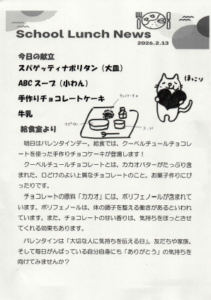 School Lunch News
2026.2.13
今日の献立
スパゲッティナポリタン（大皿）
ABCスープ（小わん）
手作りチョコレートケーキ
牛乳
ほっこり
給食室より
明日はバレンタインデー。給食では、クーベルチュールチョコレ
ートを使った手作りチョコケーキが登場します！
クーベルチュールチョコレートとは、カカオバターがたっぷり含ま
れた、口どけのよい上質なチョコレートのこと。お菓子作りにぴ
ったりです。
チョコレートの原料「カカオ」には、ポリフェノールが含まれて
います。ポリフェノールは、体の調子を整える働きがあるといわれ
ています。また、チョコレートの甘い香りは、気持ちをほっとさせ
てくれる効果もあります。
バレンタインは「大切な人に気持ちを伝える日」。友だちや家族、
そして毎日がんばっている自分自身にも「ありがとう」の気持ちを
向けてみませんか？